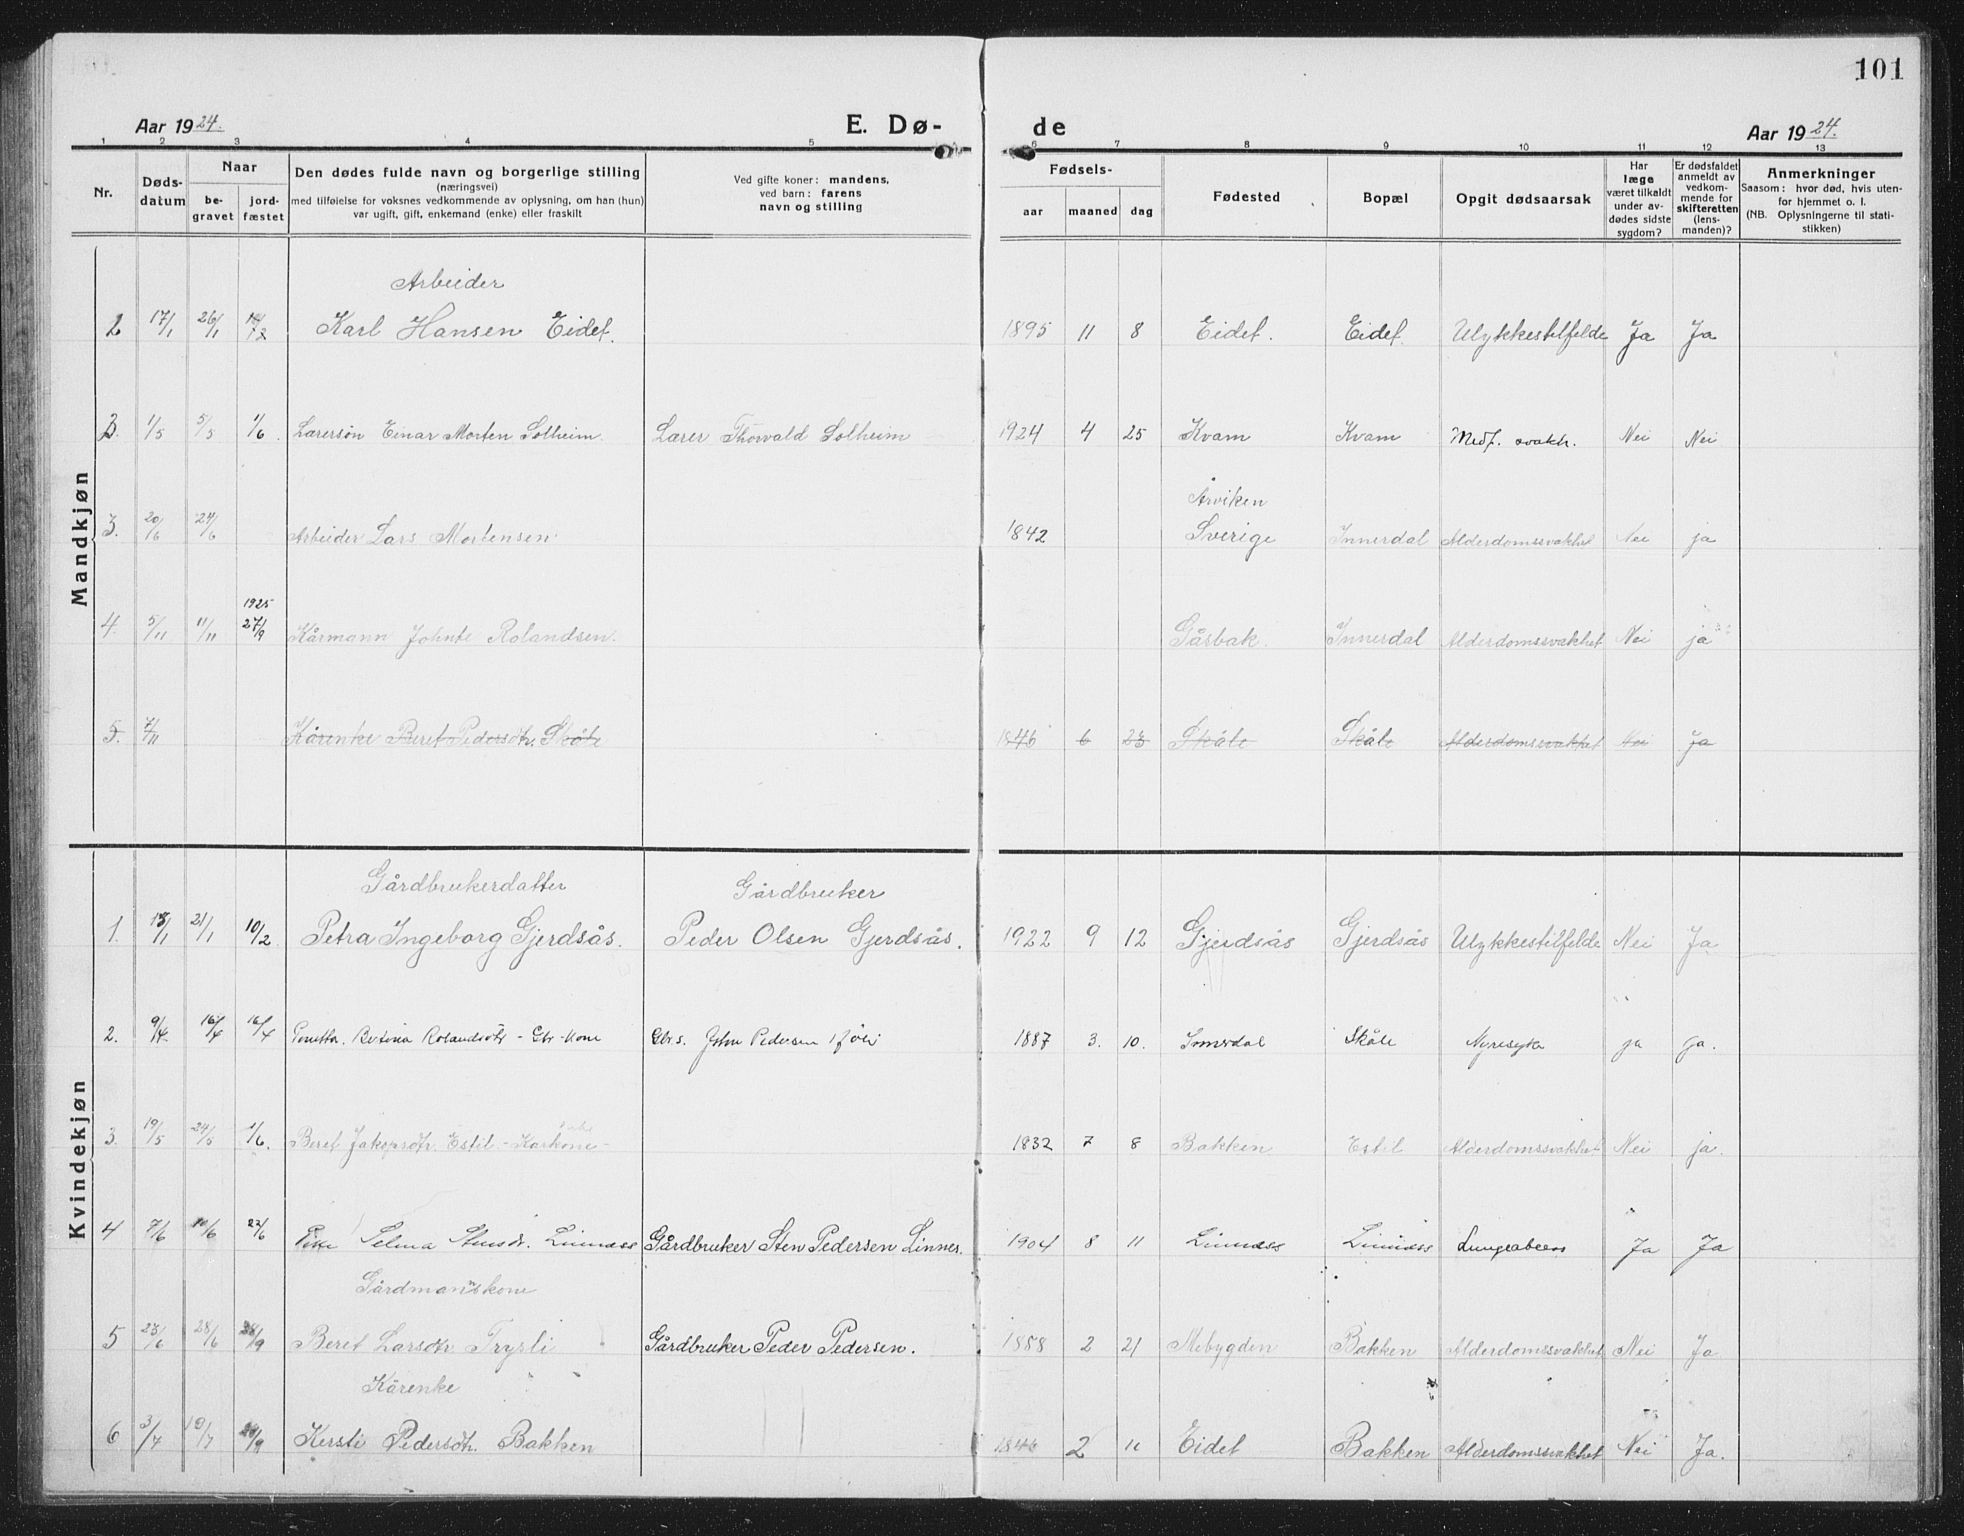 101
Aar 1924.
E. Dø-
de
Aar 1924.
1 2 3 4 5 6 7 8 9 10 11 12 13
Nr.
Døds-
datum
Naar
be-
gravet
jord-
fæstet
Den dødes fulde navn og borgerlige stilling
(næringsvei)
med tilføielse for voksnes vedkommende av oplysning, om han (hun)
var ugift, gift, enkemand (enke) eller fraskilt
Ved gifte koner: mandens,
ved barn: farens
navn og stilling
Fødsels-
aar
maaned
dag
Fødested
Bopæl
Opgit dødsaarsak
Har
læge
været tilkaldt
under av-
dødes sidste
sygdom?
Er dødsfaldet
anmeldt av
vedkom-
mende for
skifteretten
(lens-
manden)?
Anmerkninger
Saasom: hvor død, hvis uten-
for hjemmet o. l.
(NB. Oplysningerne til stati-
stikken)
Mandkjøn
Arbeider
2 17/1 26/1 Karl Hansen Eidet. 1895 11 8 Eidet. Eidet. Ulykkestilfelde Ja Ja
3. 1/5 5/5 1/6. Lærersøn Einar Morten Solheim. Lærer Thorvald Solheim 1924 4 25 Kvam Kvam Medf. svakh. Nei Nei
Arviken
3. 20/6 24/6 Arbeider Lars Mortensen 1842 Sverige Innerdal Alderdomssvakhet Nei ja
1925
4. 5/11 11/11 27/9 Kårmann Johnte Rolandsen. Gåsbak. Innerdal Alderdomssvakhet Nei ja
5. 7/11 Kårenke Beret Pedersdtr. Skåle 1846 6 23 Skåle Skåle Alderdomssvakhet Nei Ja
Kvindekjøn
Gårdbrukerdatter Gårdbruker
1. 13/1 21/1 10/2. Petra Ingeborg Gjerdsås. Peder Olsen Gjerdsås. 1922 9 12 Gjerdsås Gjerdsås Ulykkestilfelde Nei Ja
2. 9/4. 16/4 16/4 Rolandsdtr - Gbr-kone Gbr.s. John Pedersen 1887 3. 10. Innerdal Skåle Nyresyke ja ja.
3. 19/5 24/5 1/6. Beret Jakopsdtr. Estil - Karkone - 1832 7 8 Bakken Estil Alderdomssvakhet Nei ja.
4 7/6 10/6 23/6 Pike Selma Stensdr. Linnæss Gårdbruker Sten Pedersen Linnes. 1904 8 11 Linnæss Linnæss Ja Ja
Gårdmannskone
5 23/6 28/6 Beret Larsdtr Trysli Gårdbruker Peder Pedersen. 1858 2 21 Mebygden Bakken Alderdomssvakhet Nei Ja
Kårenke
6 3/7 10/7 Kersti Pedersdtr. Bakken 1846 2 Eidet Bakken Alderdomssvakhet Nei Ja.